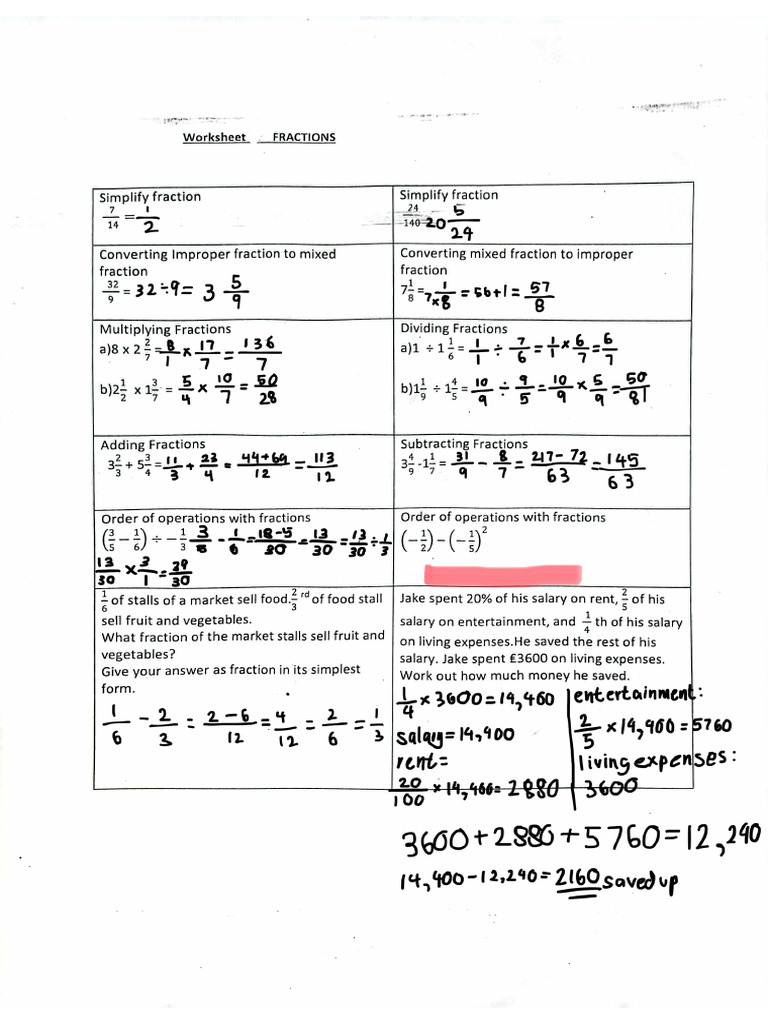 Worksheet FRACTIONS
Simplify fraction
7/14 = 1/2
Simplify fraction
24/140 20 5/24
Converting Improper fraction to mixed
fraction
32/9 = 32÷9= 3 5/9
Converting mixed fraction to improper
fraction
7 1/8 = 7×1/8 = 56+1 = 57/8
Multiplying Fractions
a)8 x 2 2/7 = 8/1 × 17/7 = 136/7
b)2 1/2 x 1 3/7 = 5/4 × 10/7 = 50/28
Dividing Fractions
a)1 ÷ 1 1/6 = 1/1 ÷ 7/6 = 1/1 × 6/7 = 6/7
b)1 1/9 ÷ 1 4/5 = 10/9 ÷ 9/5 = 10/9 × 5/9 = 50/81
Adding Fractions
3 2/3 + 5 3/4 = 11/3 + 23/4 = 44+69/12 = 113/12
Subtracting Fractions
3 4/9 -1 1/7 = 31/9 - 8/7 = 217-72/63 = 145/63
Order of operations with fractions
(3/5 − 1/6) ÷ − 1/3 3/5 - 1/6 = 18-5/30 = 13/30 = 13/30 ÷ 1/3
13/30 × 3/1 = 39/30
Order of operations with fractions
(− 1/2) − (− 1/5)²
1/6 of stalls of a market sell food. 2/3 rd of food stall
sell fruit and vegetables.
What fraction of the market stalls sell fruit and
vegetables?
Give your answer as fraction in its simplest
form.
1/6 - 2/3 = 2-6/12 = 4/12 = 2/6 = 1/3
Jake spent 20% of his salary on rent, 2/5 of his
salary on entertainment, and 1/4 th of his salary
on living expenses.He saved the rest of his
salary. Jake spent £3600 on living expenses.
Work out how much money he saved.
1/4 × 3600 = 14,400
salary = 14,400
rent=
20/100 × 14,400= 2880
entertainment:
2/5 × 14,400 = 5760
living expenses:
3600
3600+2880+5760=12,240
14,400-12,240= 2160 saved up